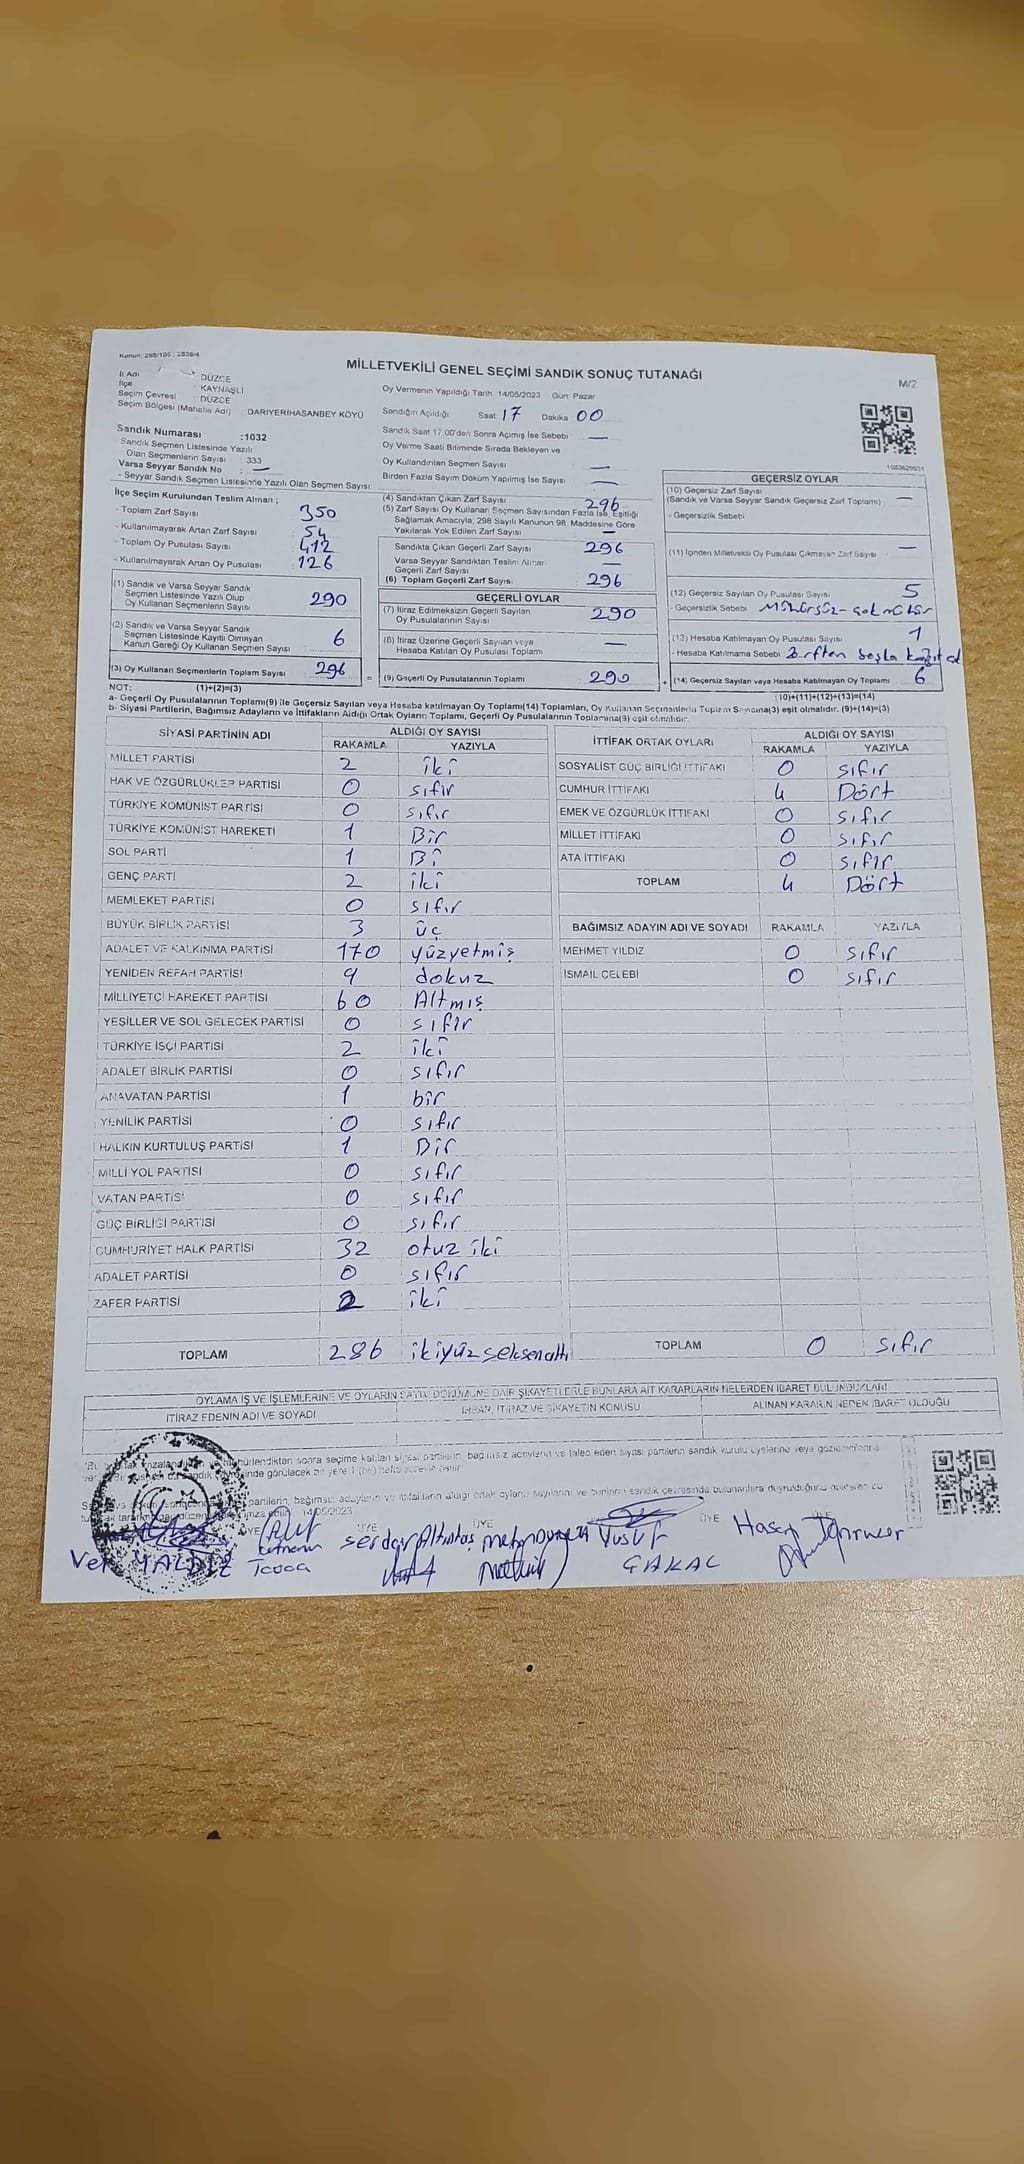 Kanun: 298/105, 2839/4
MİLLETVEKİLİ GENEL SEÇİMİ SANDIK SONUÇ TUTANAĞI
M/2
İl Adı : DÜZCE
İlçe : KAYNAŞLI
Seçim Çevresi : DÜZCE
Seçim Bölgesi (Mahalle Adı) : DARIYERİHASANBEY KÖYÜ
Oy Vermenin Yapıldığı Tarih 14/05/2023 Gün: Pazar
Sandığın Açıldığı Saat 17 Dakika 00
Sandık Saat 17:00'den Sonra Açılmış İse Sebebi —
Oy Verme Saati Bitiminde Sırada Bekleyen ve
Oy Kullandırılan Seçmen Sayısı —
Birden Fazla Sayım Döküm Yapılmış İse Sayısı —
Sandık Numarası :1032
Sandık Seçmen Listesinde Yazılı
Olan Seçmenlerin Sayısı : 333
Varsa Seyyar Sandık No : —
- Seyyar Sandık Seçmen Listesinde Yazılı Olan Seçmen Sayısı:
İlçe Seçim Kurulundan Teslim Alınan ;
- Toplam Zarf Sayısı 350
- Kullanılmayarak Artan Zarf Sayısı 54
- Toplam Oy Pusulası Sayısı 412
- Kullanılmayarak Artan Oy Pusulası 126
(1) Sandık ve Varsa Seyyar Sandık
Seçmen Listesinde Yazılı Olup
Oy Kullanan Seçmenlerin Sayısı 290
(2) Sandık ve Varsa Seyyar Sandık
Seçmen Listesinde Kayıtlı Olmayan
Kanun Gereği Oy Kullanan Seçmen Sayısı 6
(3) Oy Kullanan Seçmenlerin Toplam Sayısı 296
(4) Sandıktan Çıkan Zarf Sayısı 296
(5) Zarf Sayısı Oy Kullanan Seçmen Sayısından Fazla İse, Eşitliği
Sağlamak Amacıyla, 298 Sayılı Kanunun 98. Maddesine Göre
Yakılarak Yok Edilen Zarf Sayısı —
Sandıkta Çıkan Geçerli Zarf Sayısı 296
Varsa Seyyar Sandıktan Teslim Alınan
Geçerli Zarf Sayısı —
(6) Toplam Geçerli Zarf Sayısı 296
GEÇERLİ OYLAR
(7) İtiraz Edilmeksizin Geçerli Sayılan
Oy Pusulalarının Sayısı 290
(8) İtiraz Üzerine Geçerli Sayılan veya
Hesaba Katılan Oy Pusulası Toplamı —
= (9) Geçerli Oy Pusulalarının Toplamı 290
GEÇERSİZ OYLAR
(10) Geçersiz Zarf Sayısı
(Sandık ve Varsa Seyyar Sandık Geçersiz Zarf Toplamı) —
- Geçersizlik Sebebi
(11) İçinden Milletvekili Oy Pusulası Çıkmayan Zarf Sayısı —
(12) Geçersiz Sayılan Oy Pusulası Sayısı 5
- Geçersizlik Sebebi Mühürsüz-
(13) Hesaba Katılmayan Oy Pusulası Sayısı 1
- Hesaba Katılmama Sebebi
+ (14) Geçersiz Sayılan veya Hesaba Katılmayan Oy Toplamı 6
NOT: (1)+(2)=(3)
(10)+(11)+(12)+(13)=(14)
a- Geçerli Oy Pusulalarının Toplamı(9) ile Geçersiz Sayılan veya Hesaba katılmayan Oy Toplamı(14) Toplamları, Oy Kullanan Seçmenlerin Toplam Sayısına(3) eşit olmalıdır. (9)+(14)=(3)
b- Siyasi Partilerin, Bağımsız Adayların ve İttifakların Aldığı Ortak Oyların Toplamı, Geçerli Oy Pusulalarının Toplamına(9) eşit olmalıdır.
SİYASİ PARTİNİN ADI ALDIĞI OY SAYISI
RAKAMLA YAZIYLA
MİLLET PARTİSİ 2 iki
HAK VE ÖZGÜRLÜKLER PARTİSİ 0 sıfır
TÜRKİYE KOMÜNİST PARTİSİ 0 sıfır
TÜRKİYE KOMÜNİST HAREKETİ 1 Bir
SOL PARTİ 1 Bi
GENÇ PARTİ 2 iki
MEMLEKET PARTİSİ 0 sıfır
BÜYÜK BİRLİK PARTİSİ 3 üç
ADALET VE KALKINMA PARTİSİ 170 yüzyetmiş
YENİDEN REFAH PARTİSİ 9 dokuz
MİLLİYETÇİ HAREKET PARTİSİ 60 Altmış
YEŞİLLER VE SOL GELECEK PARTİSİ 0 sıfır
TÜRKİYE İŞÇİ PARTİSİ 2 iki
ADALET BİRLİK PARTİSİ 0 sıfır
ANAVATAN PARTİSİ 1 bir
YENİLİK PARTİSİ 0 sıfır
HALKIN KURTULUŞ PARTİSİ 1 Bir
MİLLİ YOL PARTİSİ 0 sıfır
VATAN PARTİSİ 0 sıfır
GÜÇ BİRLİĞİ PARTİSİ 0 sıfır
CUMHURİYET HALK PARTİSİ 32 otuz iki
ADALET PARTİSİ 0 sıfır
ZAFER PARTİSİ 2 iki
TOPLAM 286 ikiyüz seksenaltı
İTTİFAK ORTAK OYLARI ALDIĞI OY SAYISI
RAKAMLA YAZIYLA
SOSYALİST GÜÇ BİRLİĞİ İTTİFAKI 0 sıfır
CUMHUR İTTİFAKI 4 Dört
EMEK VE ÖZGÜRLÜK İTTİFAKI 0 sıfır
MİLLET İTTİFAKI 0 sıfır
ATA İTTİFAKI 0 sıfır
TOPLAM 4 Dört
BAĞIMSIZ ADAYIN ADI VE SOYADI RAKAMLA YAZIYLA
MEHMET YILDIZ 0 sıfır
İSMAİL ÇELEBİ 0 sıfır
TOPLAM 0 sıfır
OYLAMA İŞ VE İŞLEMLERİNE VE OYLARIN SAYIM, DÖKÜMÜNE DAİR ŞİKAYETLERLE BUNLARA AİT KARARLARIN NELERDEN İBARET BULUNDUKLARI
İTİRAZ EDENİN ADI VE SOYADI
İHBAR, İTİRAZ VE ŞİKAYETİN KONUSU
ALINAN KARARIN NEDEN İBARET OLDUĞU
14/05/2023
ÜYE ÜYE ÜYE
Serdar Altıntaş Yusuf Hasan
YALDIZ ÇAKAL